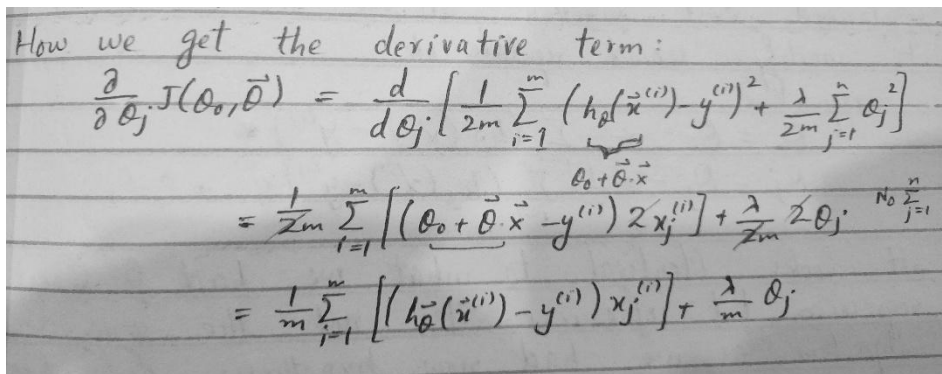 How we get the derivative term:
∂/∂θj J(θ₀,θ⃗) = d/dθj [1/2m Σ_{i=1}^{m} (h_θ(x⃗⁽ⁱ⁾)-y⁽ⁱ⁾)² + λ/2m Σ_{j=1}^{n} θj²]
θ₀+θ⃗·x⃗
= 1/2m Σ_{i=1}^{m} [(θ₀+θ⃗·x⃗-y⁽ⁱ⁾) 2xj⁽ⁱ⁾] + λ/2m 2θj. No Σ_{j=1}^{n}
= 1/m Σ_{i=1}^{m} [(h_θ⃗(x⃗⁽ⁱ⁾)-y⁽ⁱ⁾) xj⁽ⁱ⁾] + λ/m θj